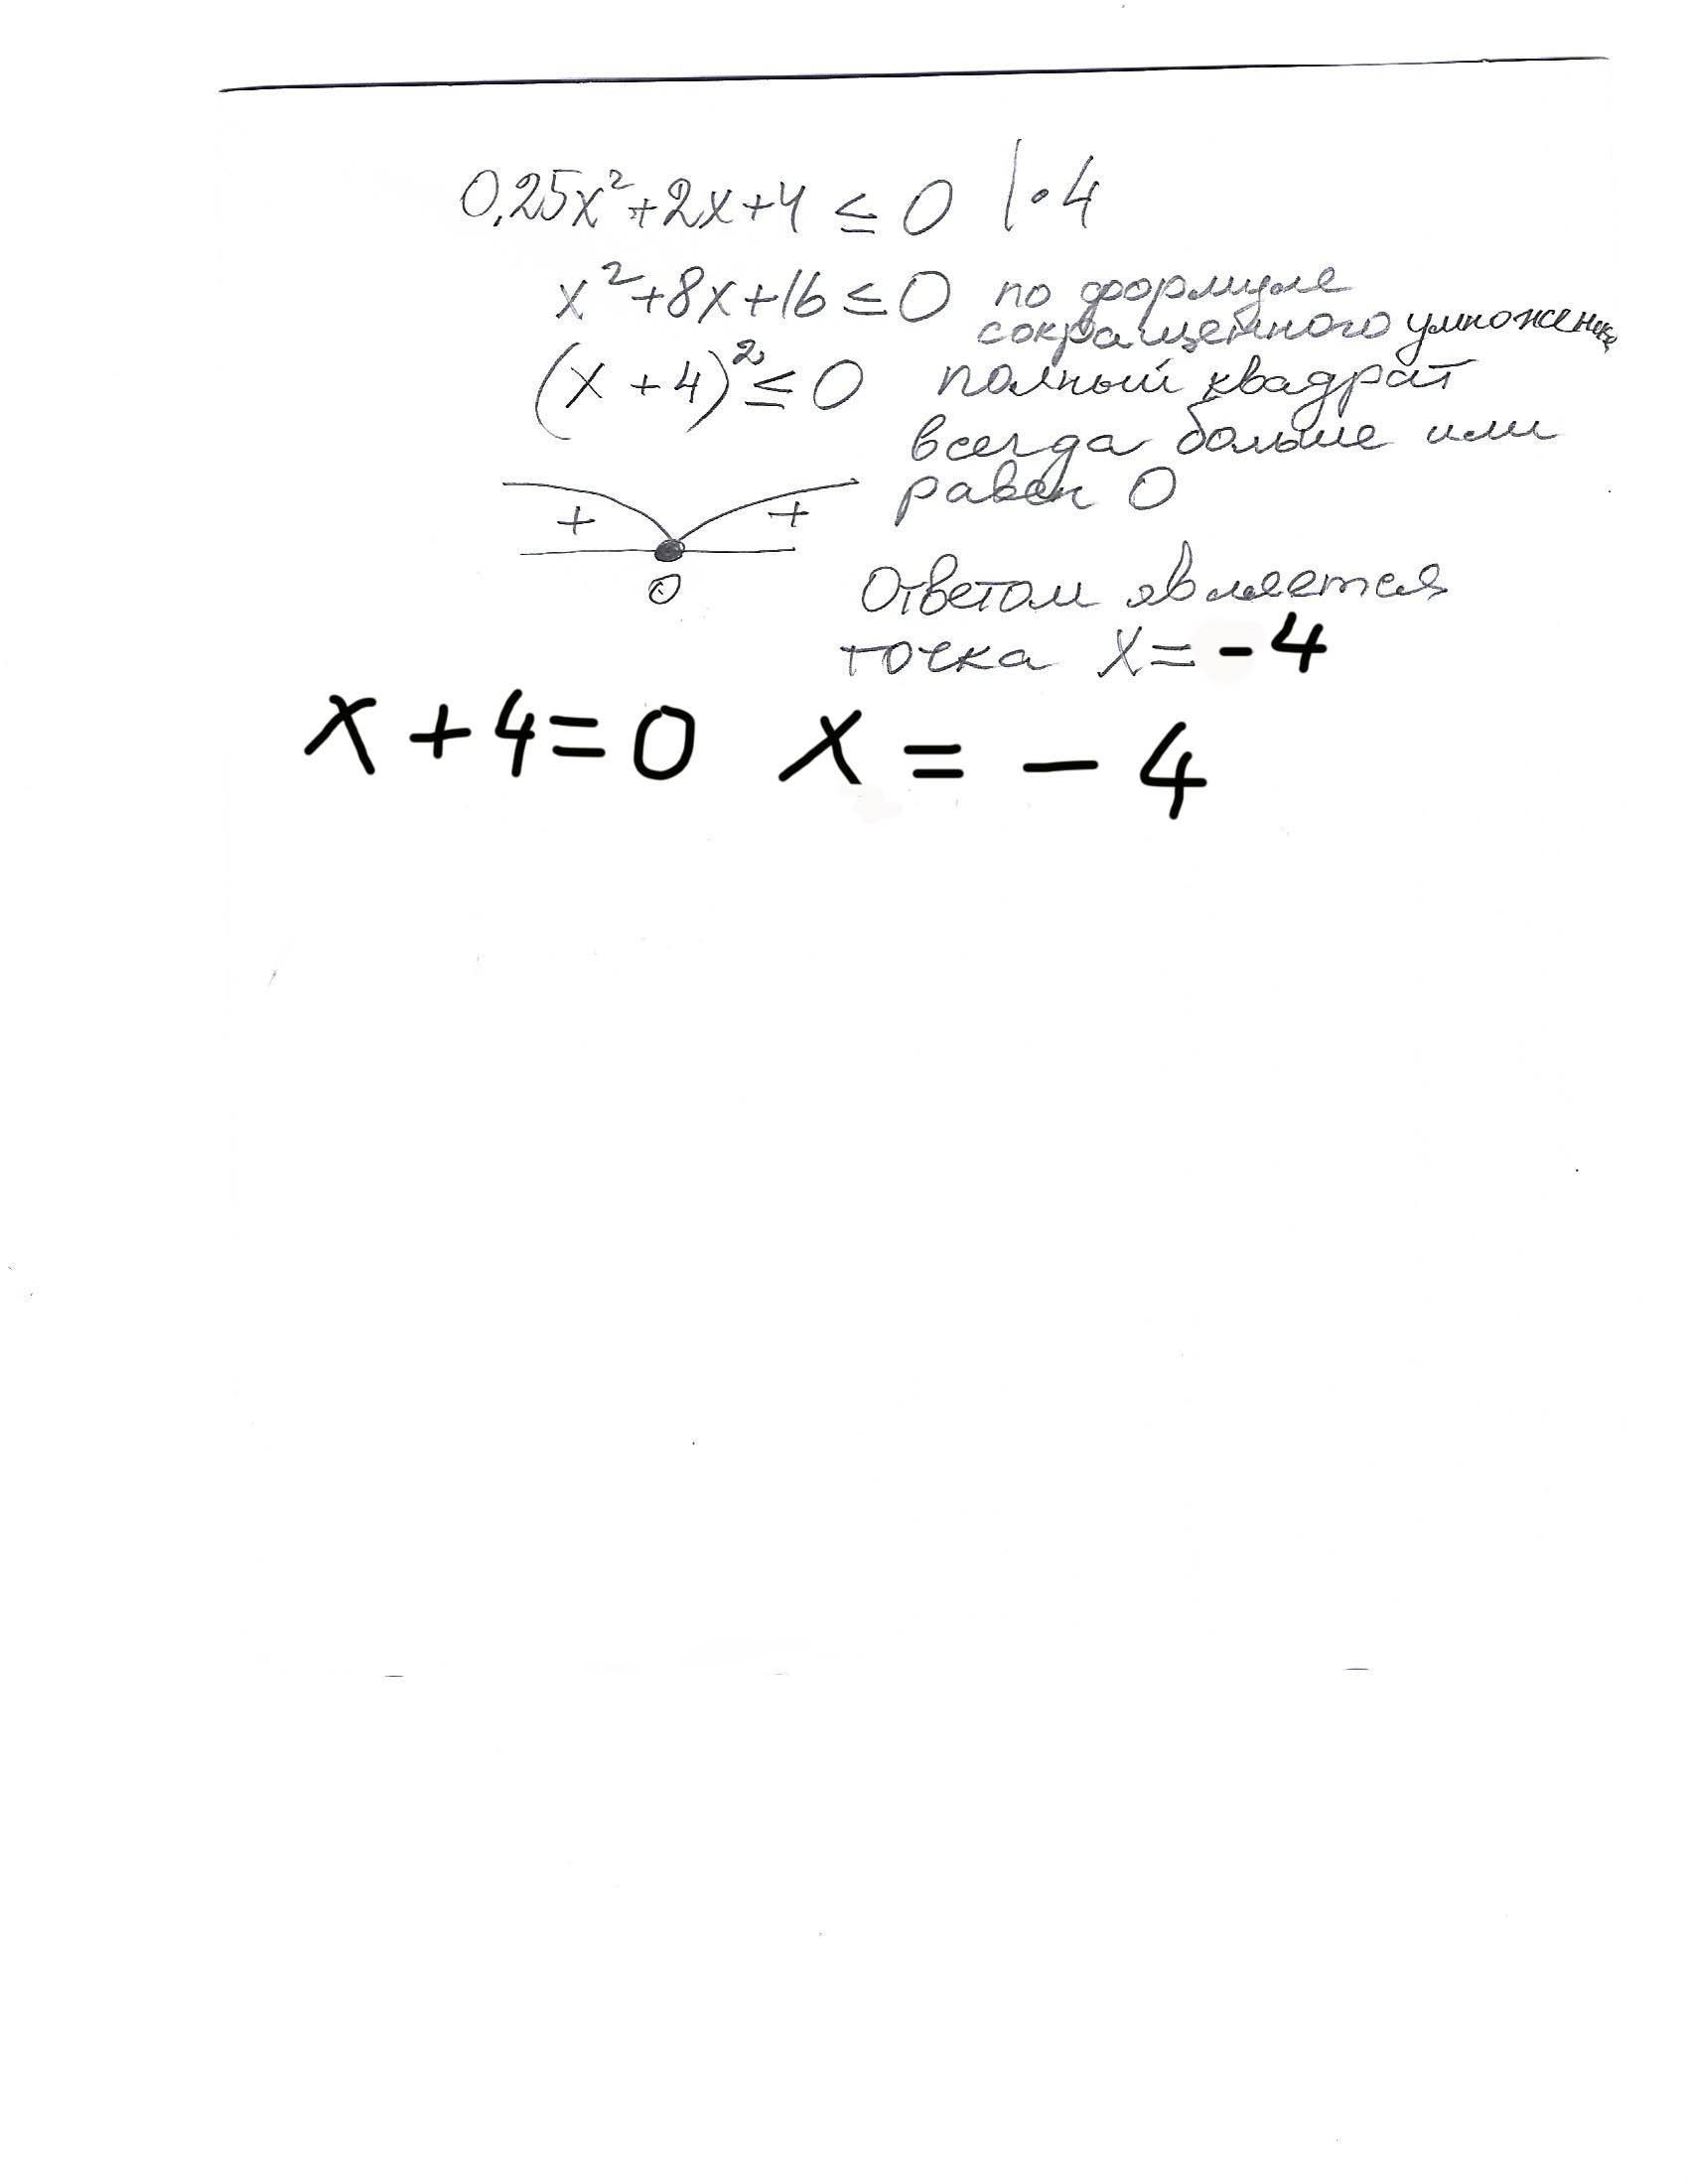 0,25x²+2x+4 ≤ 0 | · 4
x²+8x+16 ≤ 0 по формуле
сокращённого умножения
(x + 4)² ≤ 0 полный квадрат
всегда больше или
равен 0
+ +
0
Ответом является
точка x = -4
x + 4 = 0 x = - 4